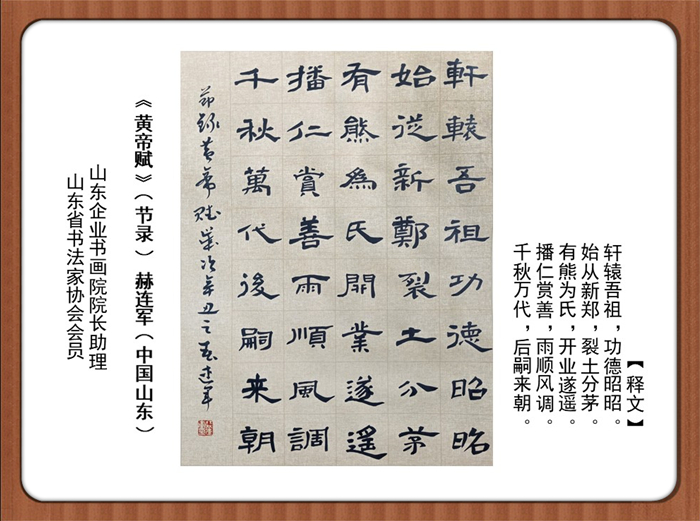 【释文】
轩辕吾祖，功德昭昭。
始从新郑，裂土分茅。
有熊为氏，开业遂遥。
播仁赏善，雨顺风调。
千秋万代，后嗣来朝。
軒轅吾祖功德昭昭
始從新鄭裂土分茅
有熊為氏開業遂遙
播仁賞善雨順風調
千秋萬代後嗣来朝
節録黄帝赋歲次辛丑之夏連軍
《黄帝赋》（节录） 赫连军（中国山东）
山东企业书画院院长助理
山东省书法家协会会员